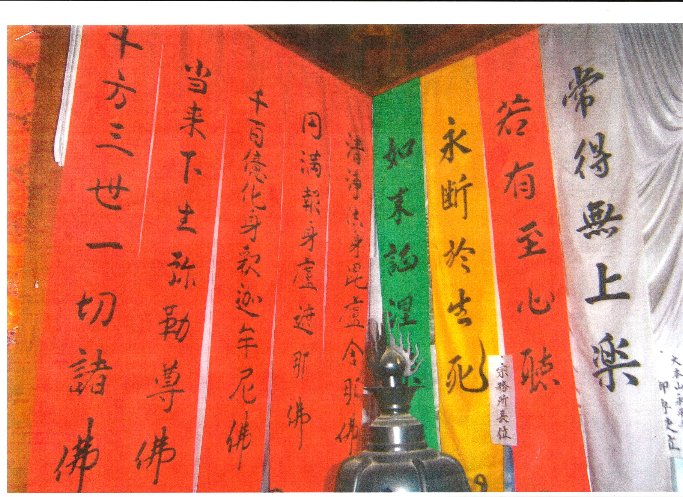 常得無上楽
若有至心聴
宗務所長位
永断於生死
如来証涅
清浄法身毘盧舎那佛
円満報身盧遮那佛
千百億化身釈迦牟尼佛
当来下生弥勒尊佛
十方三世一切諸佛
大本山永平